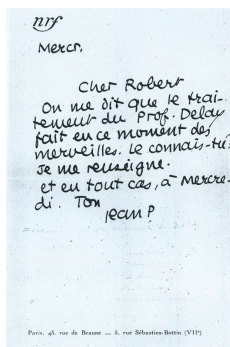 nrf
Mercr.
Cher Robert
On me dit que le trai-
tement du Prof. Delay
fait en ce moment des
merveilles. Le connais-tu?
Je me renseigne.
et en tout cas, à Mercre-
di. Ton
Jean P
Paris, 43, rue de Beaune — 5, rue Sébastien-Bottin (VIIe)